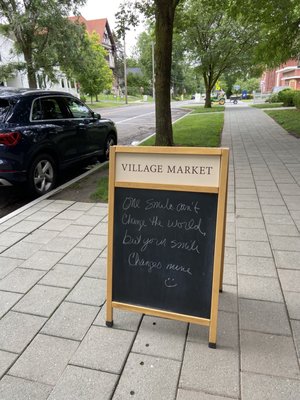 VILLAGE MARKET
One smile can't
Change the world,
but your smile
Changes mine